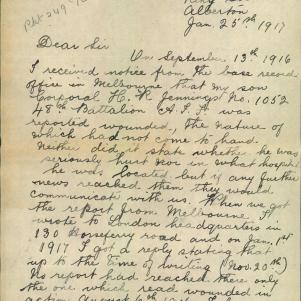 Alberton
Jan. 25th 1917
Dear Sir
On September 13th 1916
I received notice from the base record
office in Melbourne that my son
Corporal H. R. Jennings No. 1052
48th Battalion A.I.F. was
reported wounded, the nature of
which had not come to hand.
Neither did it state whether he was
seriously hurt nor in what hospital
he was located but if any further
news reached them they would
communicate with us. When we got
the report from Melbourne I
wrote to London headquarters in
130 Horseferry road and on Jan, 1st
1917 I got a reply stating that
up to the time of writing (Nov. 20th)
no report had reached there only
the one which read wounded in
action August 6th